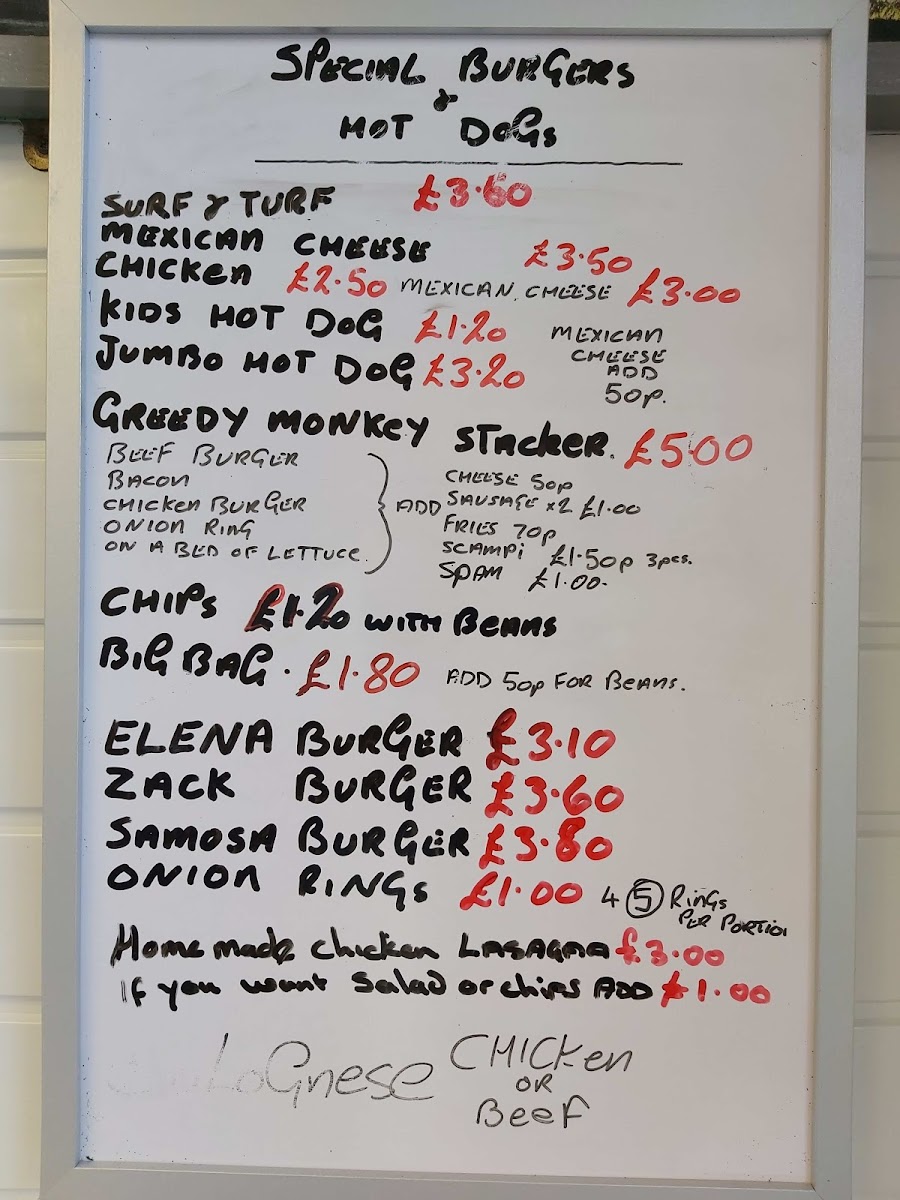 SPECIAL BURGERS
&
HOT DOGS
SURF & TURF £3.60
MEXICAN CHEESE £3.50
CHICKEN £2.50 MEXICAN CHEESE £3.00
KIDS HOT DOG £1.20 MEXICAN
CHEESE
JUMBO HOT DOG £3.20 ADD
50p.
GREEDY MONKEY STACKER. £5.00
BEEF BURGER CHEESE 50p
BACON SAUSAGE x2 £1.00
CHICKEN BURGER ADD
ONION RING FRIES 70p
ON A BED OF LETTUCE. SCAMPI £1.50p 3pcs.
SPAM £1.00.
CHIPS £1.20 WITH BEANS
BIG BAG. £1.80 ADD 50p FOR BEANS.
ELENA BURGER £3.10
ZACK BURGER £3.60
SAMOSA BURGER £3.80
ONION RINGS £1.00 4 5 RINGS
PER PORTION
Home made chicken LASAGNA £3.00
If you want Salad or chips ADD £1.00
LoGnese CHICKEN
OR
BeeF